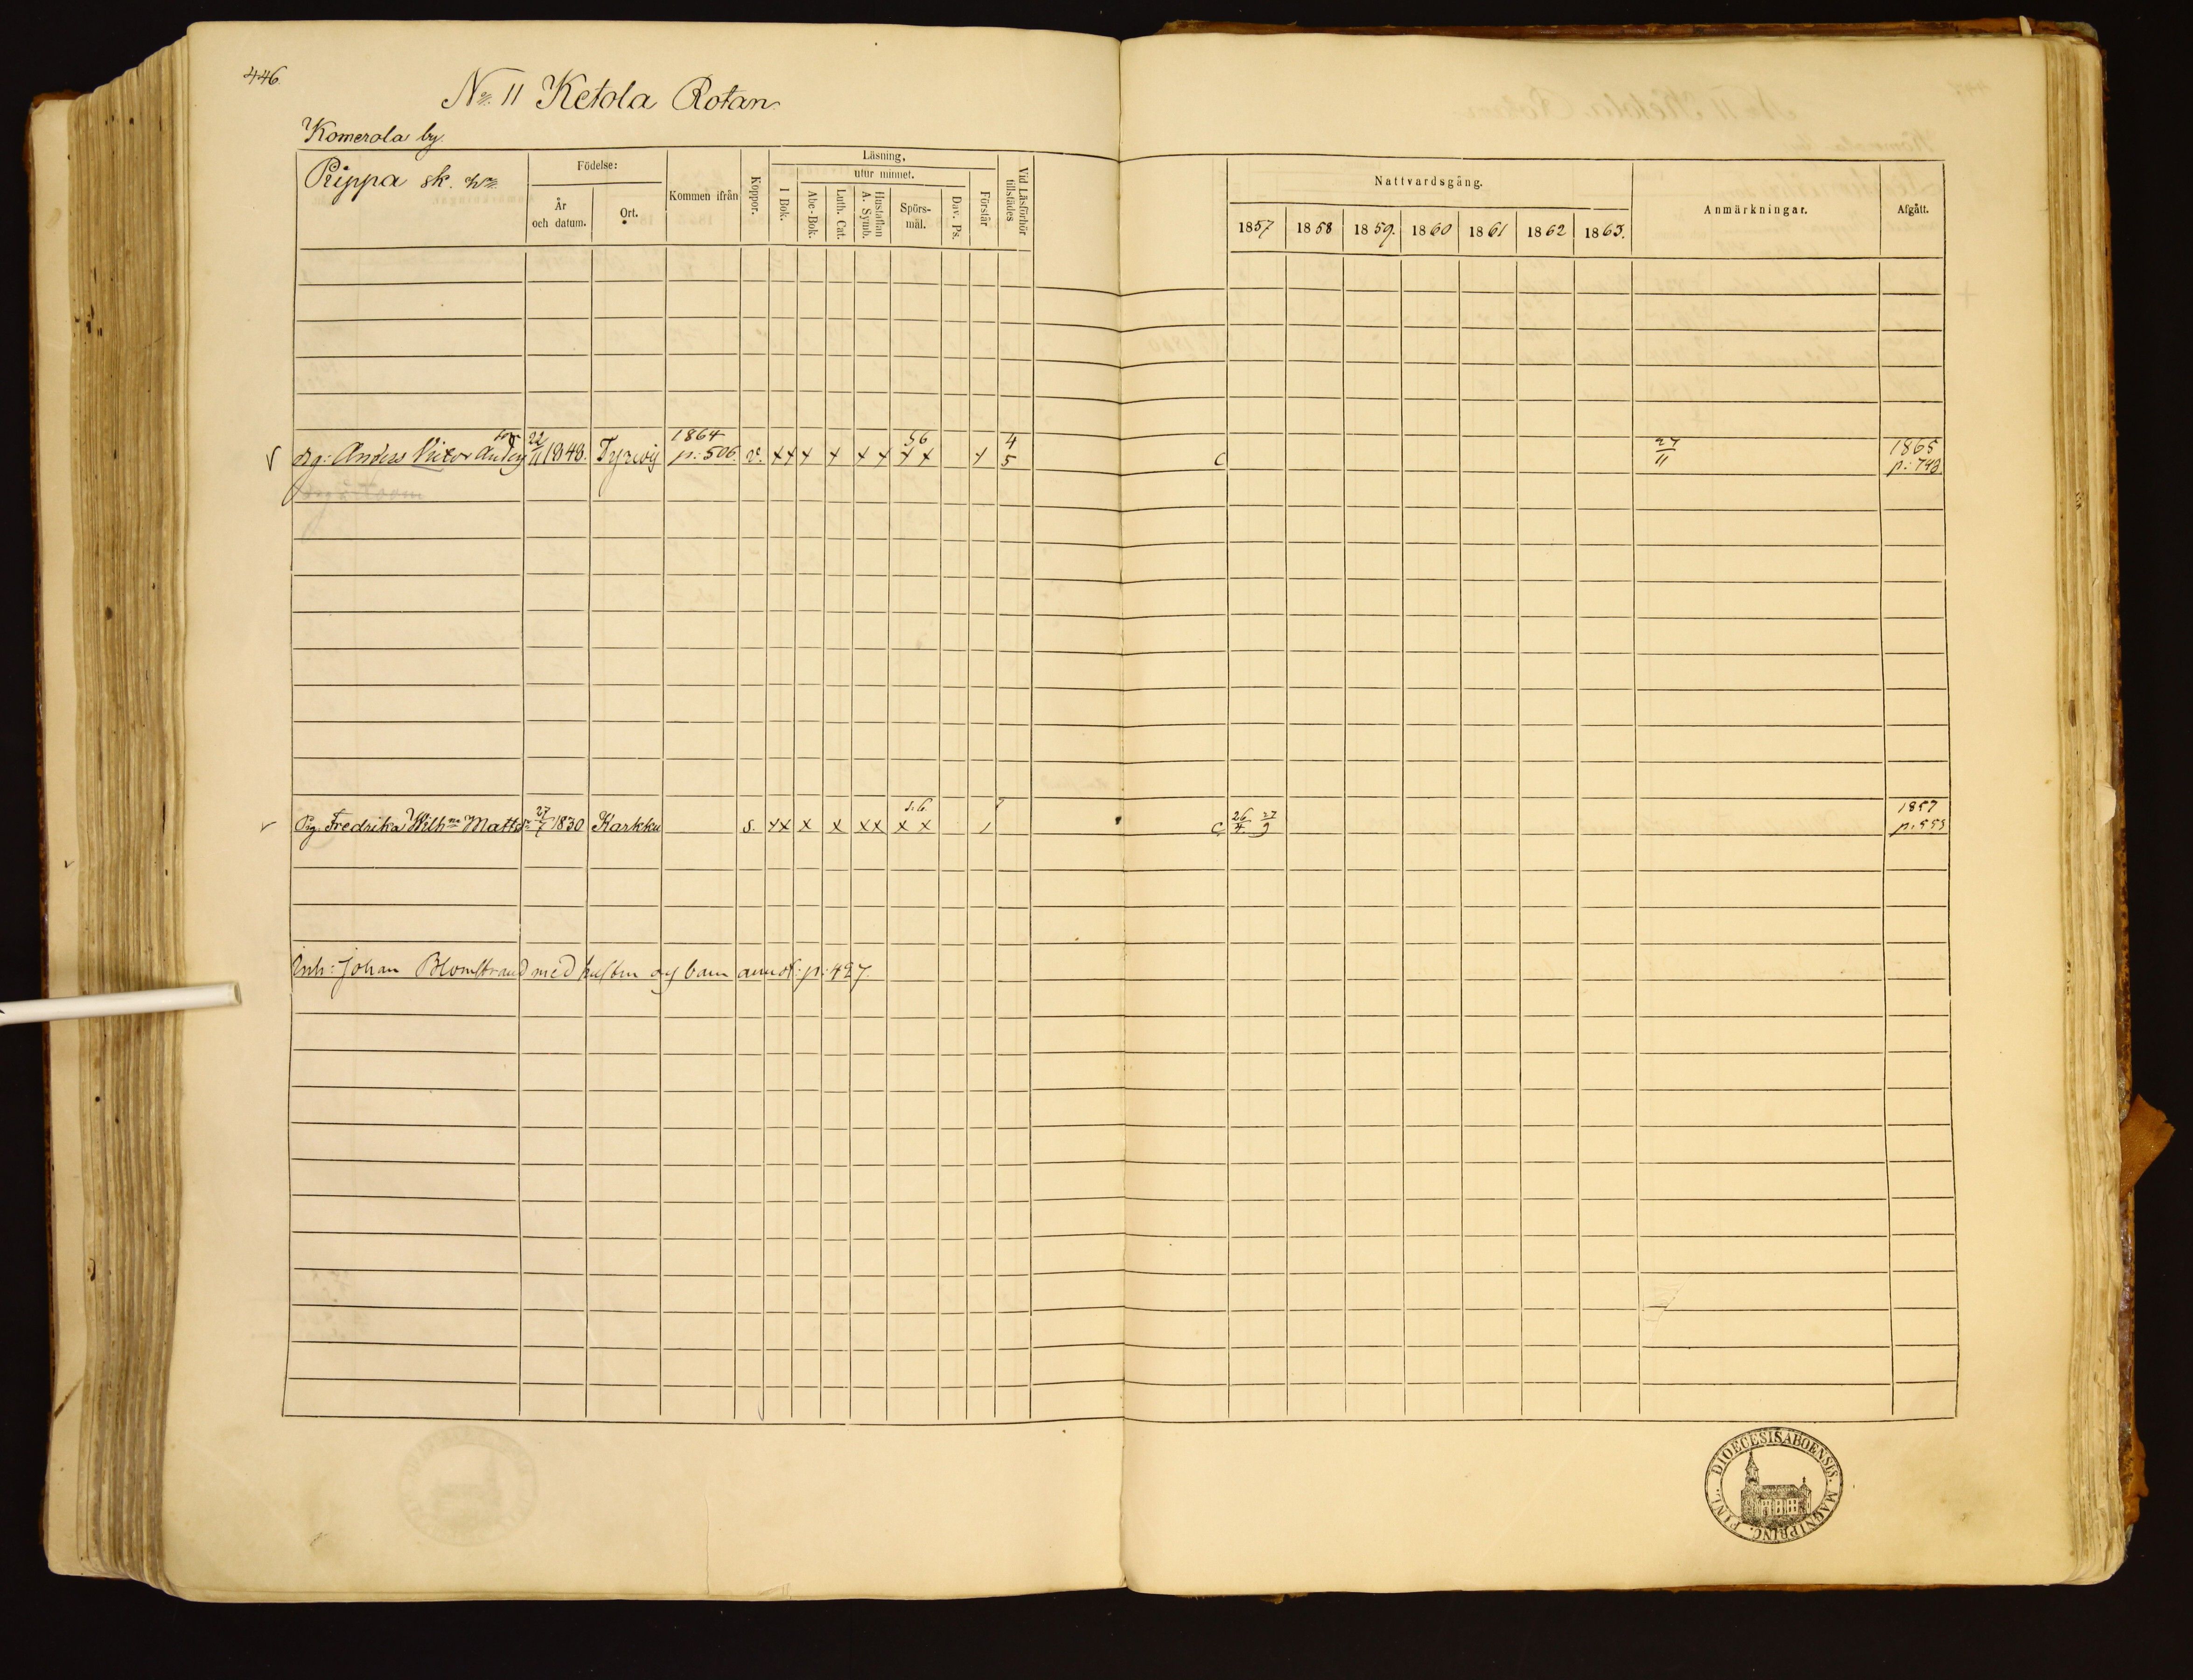 446.
No. 11 Ketola Rotan
Komerola by.
Rippa sk. hn.
Födelse:
År och datum.
Ort.
Kommen ifrån
Koppor.
Läsning,
utur minnet.
I Bok.
Abc-Bok.
Luth. Cat.
Hustaflan A. Symb.
Spörsmål.
Dav. Ps.
Förstår
Vid Läsförhör tillstädes
Nattvardsgång.
1857 1858 1859. 1860 1861 1862 1863.
Anmärkningar.
Afgått.
drg: Anders Victor Anders son 22/11 1848. Tyrwis 1864 p: 506. v. x x x x x x 56 x x x 4/5 c 27/11 1865 p: 793
Pig. Fredrika Wilhna Mattsdr 27/7 1830 Karkku s. x x x x x x s.6. x x / c 26/4 27/9 1857 p. 559
Inh: Johan Blomstrand med hustru og barn annot: p: 427.
DIOECESIS ABOENSIS. MAGNI PRINC. FINL.